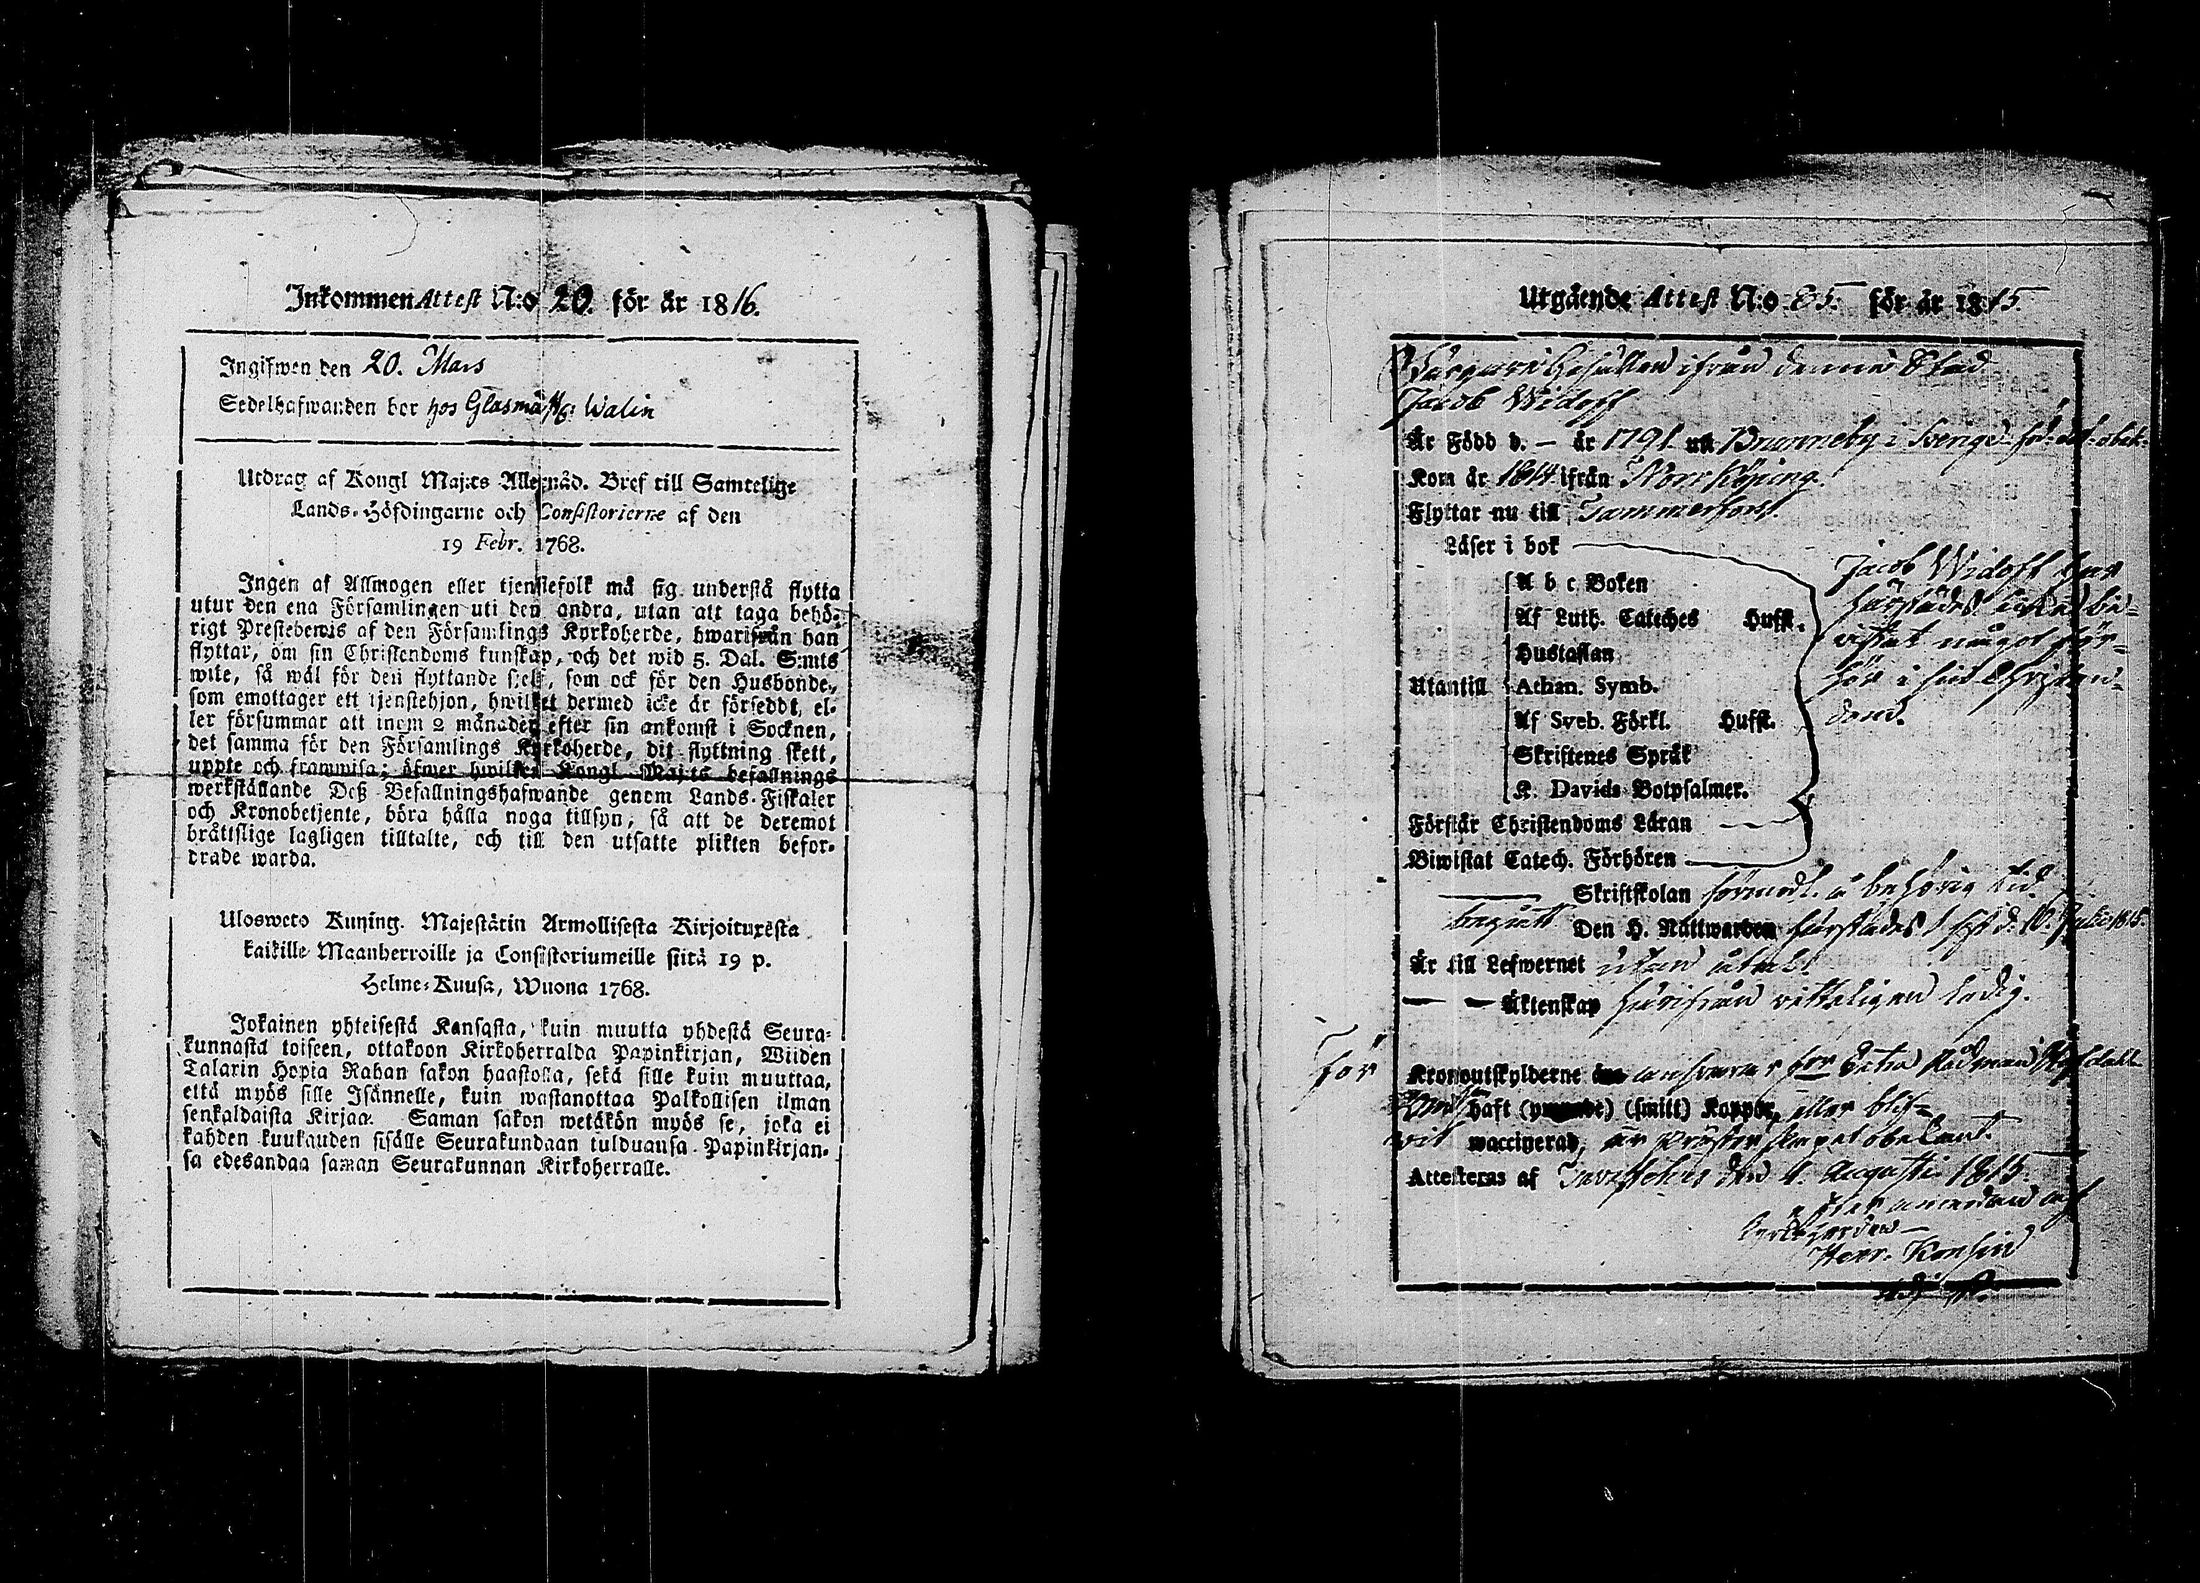 Inkommen Attest N:o 20. för år 1816.
Ingifwen den 20. Mars
Sedelhafwanden bor hos Glasmäst: Walin
Utdrag af Kongl Maj:ts Allernåd. Bref till Samtelige
Lands-Höfdingarne och Consistorierne af den
19 Febr. 1768.
Ingen af Allmogen eller tjenstefolk må sig understå flytta
utur den ena Församlingen uti den andra, utan att taga behö-
rigt Prestebewis af den Församlings Kyrkoherde, hwarifrån han
flyttar, om sin Christendoms kunskap, och det wid 5. Dal. S:mts
wite, så wäl för den flyttande sjelf, som ock för den Husbonde,
som emottager ett tjenstehjon, hwilket dermed icke är försedt, el-
ler försummar att inom 2 månader efter sin ankomst i Socknen,
det samma för den Församlings Kyrkoherde, dit flyttning skett,
uppte och framwisa; öfwer hwilket Kongl Maj:ts befallnings
werkställande Deß Befallningshafwande genom Lands-Fiskaler
och Kronobetjente, böra hålla noga tillsyn, så att de deremot
bråttslige lagligen tilltalte, och till den utsatte plikten befor-
drade warda.
Ulosweto Kuning. Majestätin Armollisesta Kirjoituxesta
kaikille Maanherroille ja Consistoriumeille siitä 19 p.
Helme-Kuusa, Wuona 1768.
Jokainen yhteisestä Kansasta, kuin muutta yhdestä Seura-
kunnasta toiseen, ottakoon Kirkoherralda Papinkirjan, Wiiden
Talarin Hopia Rahan sakon haastolla, sekä sille kuin muuttaa,
että myös sille Isännelle, kuin wastanottaa Palkollisen ilman
senkaldaista Kirjaa. Saman sakon wetäkön myös se, joka ei
kahden kuukauden sisälle Seurakundaan tulduansa Papinkirjan-
sa edesandaa saman Seurakunnan Kirkoherralle.
Utgående Attest N:o 85. för år 1815.
ifrån denna Stad
Jacob Widoff
Är Född d. — år 1791 uti Brunneby i Sverige
Kom år 1814 ifrån Norrköping
Flyttar nu till Tammerfors
Läser i bok
A b c Boken
Af Luth. Cateches Hufst.
Hustaflan
Utantill Athan. Symb.
Af Sveb. Förkl. Hufst.
Skriftenes Språk
K. Davids Botpsalmer.
Jacob Widoff har
härstädes icke bi-
vistat något för-
hör i sin Christen-
dom.
Förstår Christendoms Läran
Biwistat Catech. Förhören
Skriftskolan förmodl. å behörig tid
begått Den H. Nattwarden härstädes sist d. 10. Julii 1815.
Är till Lefwernet utan åtal.
— — Äktenskap härifrån vitterligen ledig.
För Kronoutskylderne ansvarar för Rådman
haft (smitt) Koppor, eller blif-
vit waccinerad, är Prästerskapet obekant.
Attesteras af Tavastehus den 4. Augusti 1815.
Kyrkoherden
Henr. Konsin